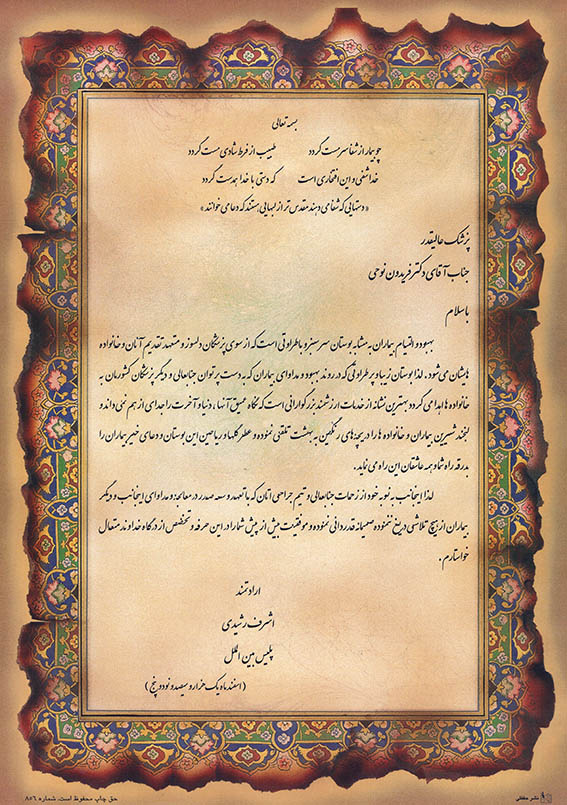 بسمه تعالی
چو بیمار از شفا سرمست گردد طبیب از فرط شادی مست گردد
خدا شفی و این افتخاری است که دستی با خدا همدست گردد
«دستهایی که شفا می دهند مقدس تر از لبهایی هستند که دعا می خوانند»
پزشک عالیقدر
جناب آقای دکتر فریدون نوحی
با سلام
بهبود و التیام بیماران به مشابه بوستان سرسبز و باطراوتی است که از سوی پزشکان دلسوز و متعهد تقدیم آنان و خانواده
هایشان می شود. لذا بوستان زیبا و پر طراوتی که در روند بهبود و مداوای بیماران که به دست پرتوان جنابعالی و دیگر پزشکان کشورمان به
خانواده ها اهدا می گردد بهترین نشانه از خدمات ارزشمند بزرگوارانی است که نگاه عمیق آنها، دنیا و آخرت را جدای از هم نمی داند و
لبخند شیرین بیماران و خانواده ها را دریچه های رنگین به بهشت تلقی نموده و عطر گلها و ریاحین این بوستان و دعای خیر بیماران را
بدرقه راه شما و همه عاشقان این راه می نماید.
لذا اینجانب به نوبه خود از زحمات جنابعالی و تیم جراحی اتان که با تعهد و سعه صدر در معالجه و مداوای اینجانب و دیگر
بیماران از هیچ تلاشی دریغ ننموده صمیمانه قدردانی نموده و موفقیت بیش از پیش شما را در این حرفه و تخصص از درگاه خداوند متعال
خواستارم.
ارادتمند
اشرف رشیدی
پلیس بین الملل
(اسفند ماه یک هزار و سیصد و نود و پنج)
حق چاپ محفوظ است. شماره ۸۵۶
نشر